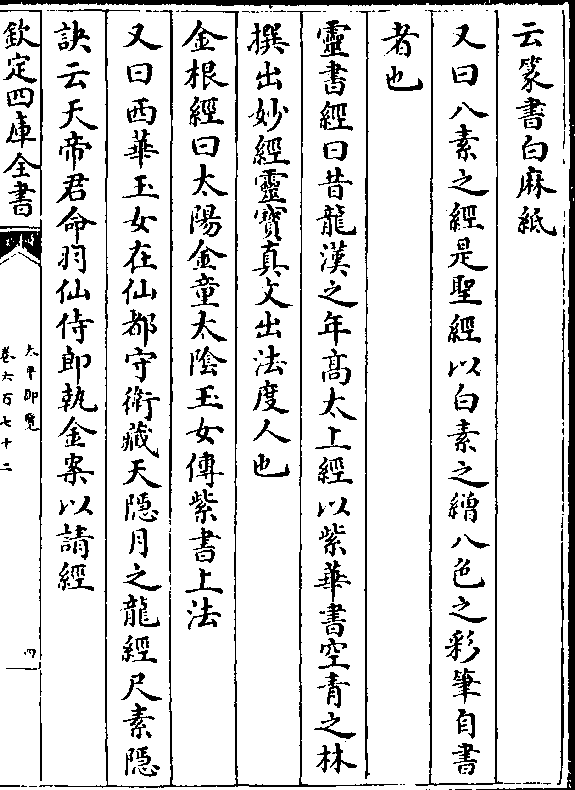 云篆書白麻紙
又曰八素之經是聖經以白素之繒八色之彩筆自書
者也
靈書經曰昔龍漢之年高太上經以紫華書空青之林
撰出妙經靈寶真文出法度人也
金根經曰太陽金童太陰玉女傳紫書上法
又曰西華玉女在仙都守衛藏天隠月之龍經尺素隠
訣云天帝君命羽仙侍郎執金案以請經
欽定四庫全書
太平御覽
卷六百七十二
四